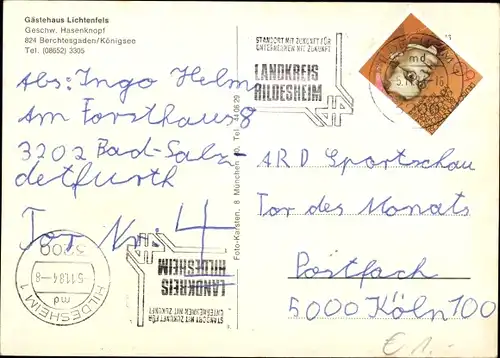 Gästehaus Lichtenfels
Geschw. Hasenknopf
824 Berchtesgaden/Königsee
Tel. (08652) 3305
Abs: Ingo Helm
Am Forsthaus 8
3202 Bad-Salz-
detfurth
Tor Nr: 4
STANDORT MIT ZUKUNFT FÜR
UNTERNEHMEN MIT ZUKUNFT
LANDKREIS
HILDESHEIM
md
ARD Sportschau
Tor des Monats
Postfach
5000 Köln 100
Foto-Karsten, 8 München 40, Tel.
3200
-5.11.84-8
md
HILDESHEIM 1
STANDORT MIT ZUKUNFT FÜR
UNTERNEHMEN MIT ZUKUNFT
LANDKREIS
HILDESHEIM
€ 1.-